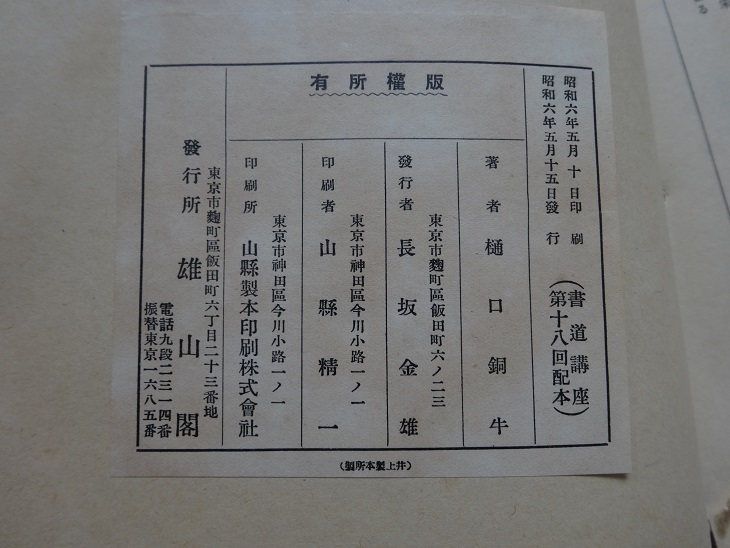 昭和六年五月十日印刷
昭和六年五月十五日發行
(書道講座
第十八回配本)
版權所有
著者 樋口銅牛
東京市麴町區飯田町六ノ二三
發行者 長坂金雄
東京市神田區今川小路一ノ一
印刷者 山縣精一
東京市神田區今川小路一ノ一
印刷所 山縣製本印刷株式會社
東京市麴町區飯田町六丁目二十三番地
發行所 雄山閣
電話九段二三一四番
振替東京一六八五番
(井上製本所製)